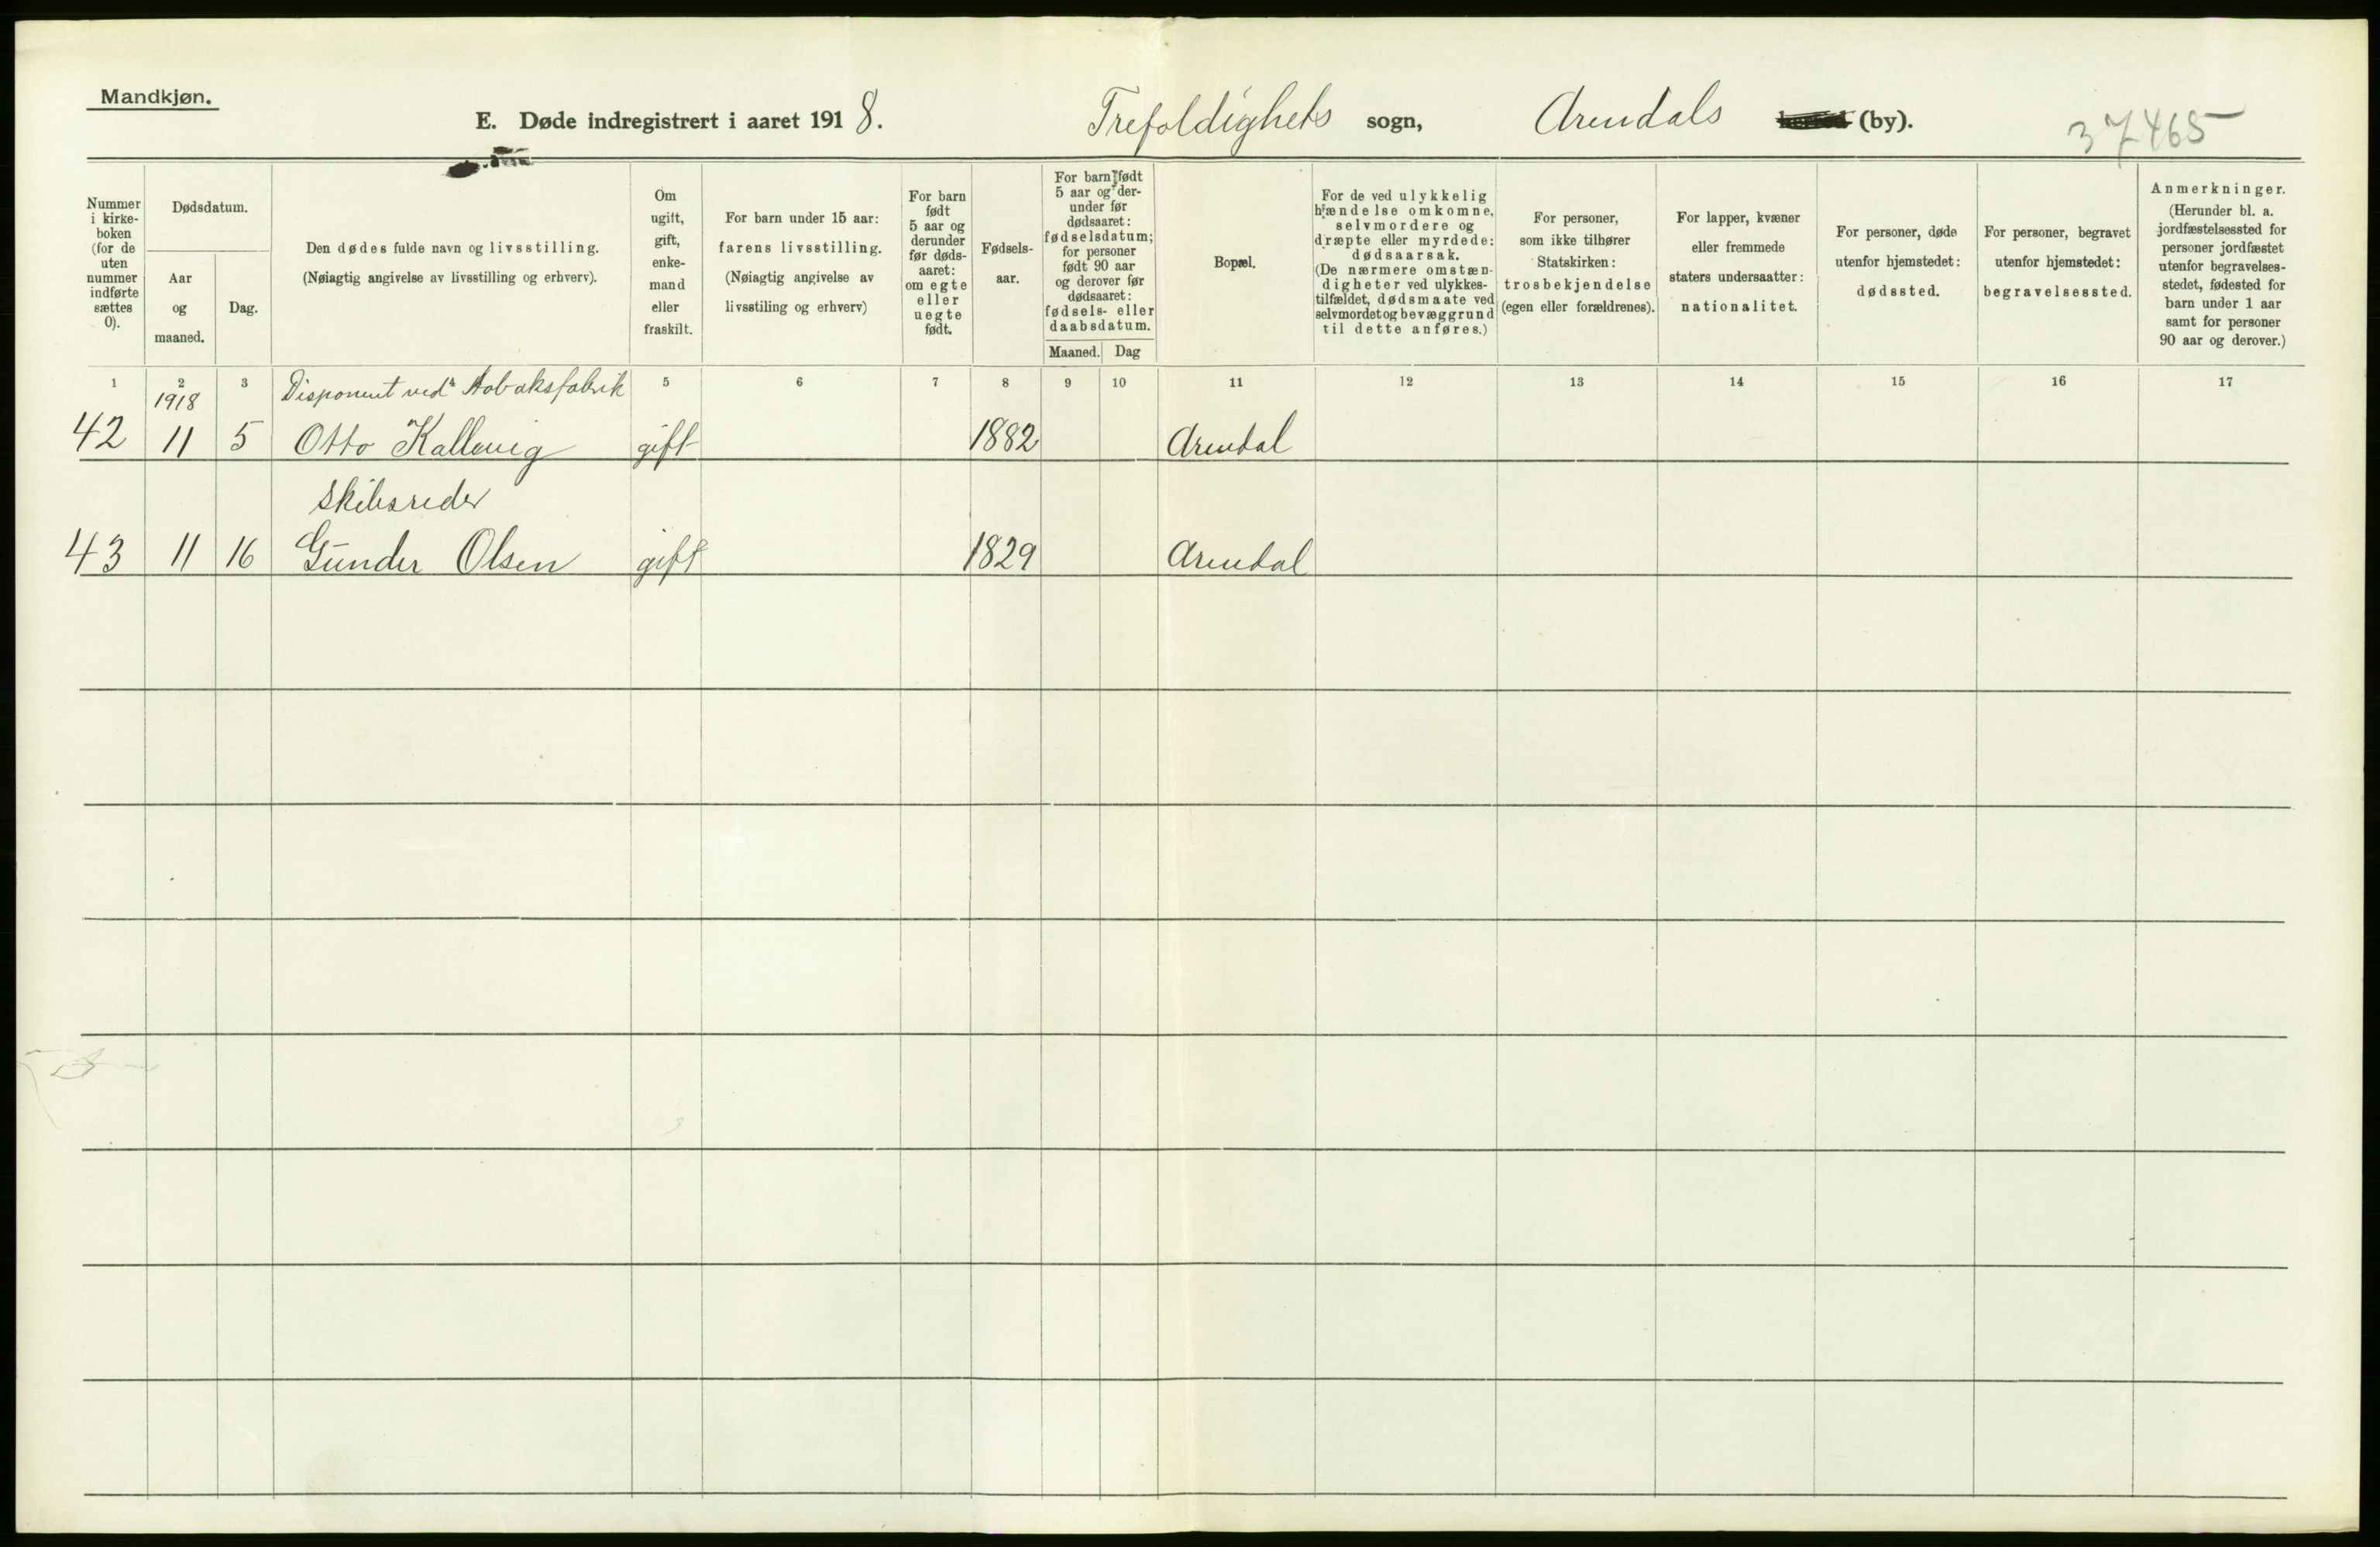 Mandkjøn.
E. Døde indregistrert i aaret 1918. Trefoldigheds sogn, Arendals herred (by). 37465
Nummer i kirke- boken (for de uten nummer indførte sættes 0).
Dødsdatum.
Aar og maaned.
Dag.
Den dødes fulde navn og livsstilling.
(Nøiagtig angivelse av livsstilling og erhverv).
Om ugift, gift, enke- mand eller fraskilt.
For barn under 15 aar:
farens livsstilling.
(Nøiagtig angivelse av
livsstiling og erhverv)
For barn født 5 aar og derunder før døds- aaret: om egte eller uegte født.
Fødsels- aar.
For barn født 5 aar og der- under før dødsaaret: fødselsdatum; for personer født 90 aar og derover før dødsaaret: fødsels- eller daabsdatum.
Maaned. Dag
Bopæl.
For de ved ulykkelig hændelse omkomne, selvmordere og dræpte eller myrdede: dødsaarsak. (De nærmere omstæn- digheter ved ulykkes- tilfældet, dødsmaate ved selvmordet og bevæggrund til dette anføres.)
For personer, som ikke tilhører Statskirken: trosbekjendelse (egen eller forældrenes).
For lapper, kvæner eller fremmede staters undersaatter: nationalitet.
For personer, døde utenfor hjemstedet: dødssted.
For personer, begravet utenfor hjemstedet: begravelsessted.
Anmerkninger. (Herunder bl. a. jordfæstelsessted for personer jordfæstet utenfor begravelses- stedet, fødested for barn under 1 aar samt for personer 90 aar og derover.)
1 2 3 5 6 7 8 9 10 11 12 13 14 15 16 17
1918 Disponent ved Tobaksfabrik
42 11 5 Otto Kallevig gift 1882 Arendal
Skibsreder
43 11 16 Gunder Olsen gift 1829 Arendal